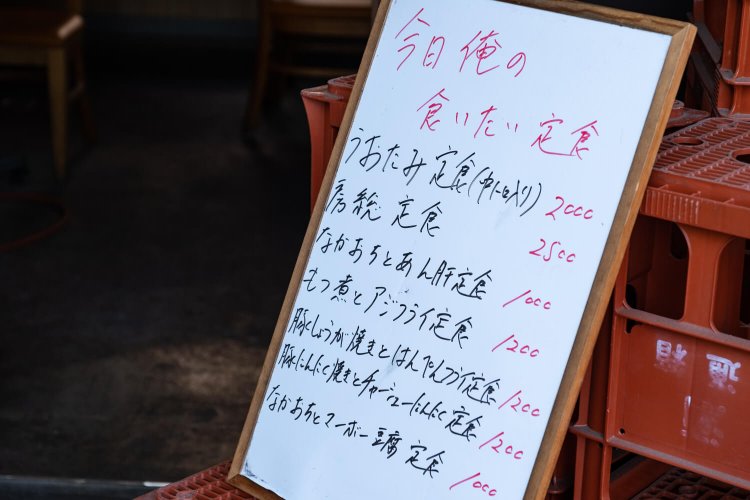 今日俺の
食いたい定食
うおたみ定食(中トロ入り) 2000
房総定食 2500
なかおちとあん肝定食 1000
もつ煮とアジフライ定食 1200
豚しょうが焼きとはんぺんフライ定食 1200
豚にんにく焼きとチャーシューにんにく定食 1200
なかおちとマーボー豆腐定食 1000